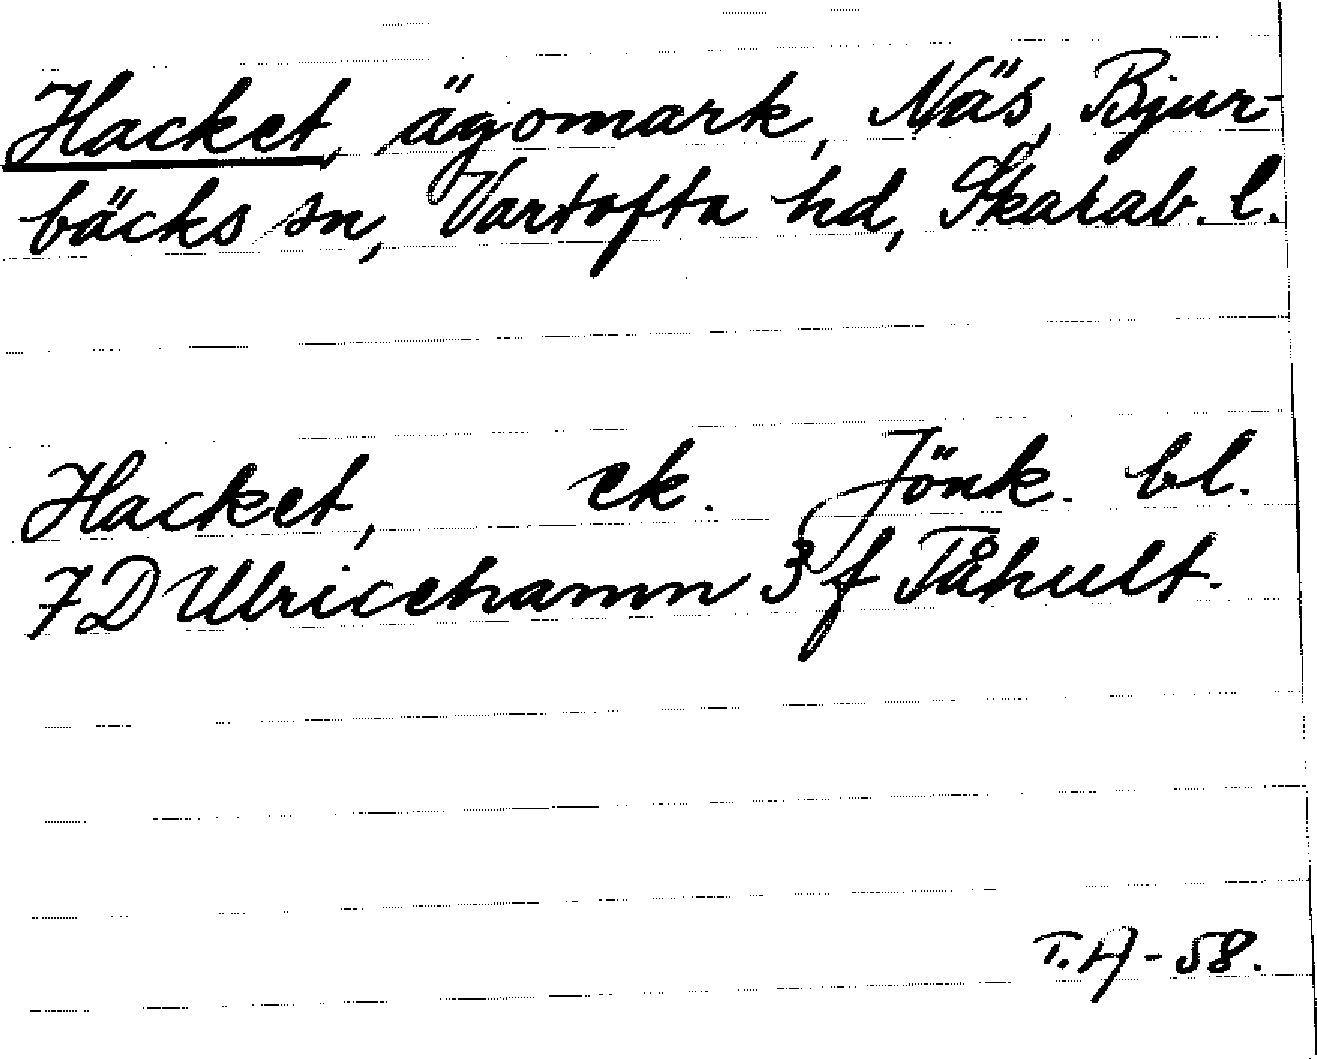 Hacket, ägomark, Näs, Bjur-
bäcks sn, Vartofta hd, Skarab. l.
Hacket, ek. Jönk. bl.
7D Ulricehamn 3 f Tåhult.
T.A-58.